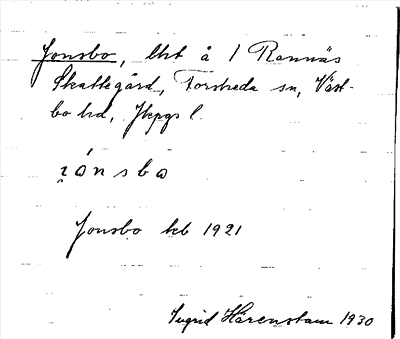 Jonsbo, lht å 1 Rannäs
Skattegård, Forsheda sn, Väst-
bo hd, Jkpgs l.
ɪónsbo
Jonsbo kb 1921
Ingrid Härenstam 1930